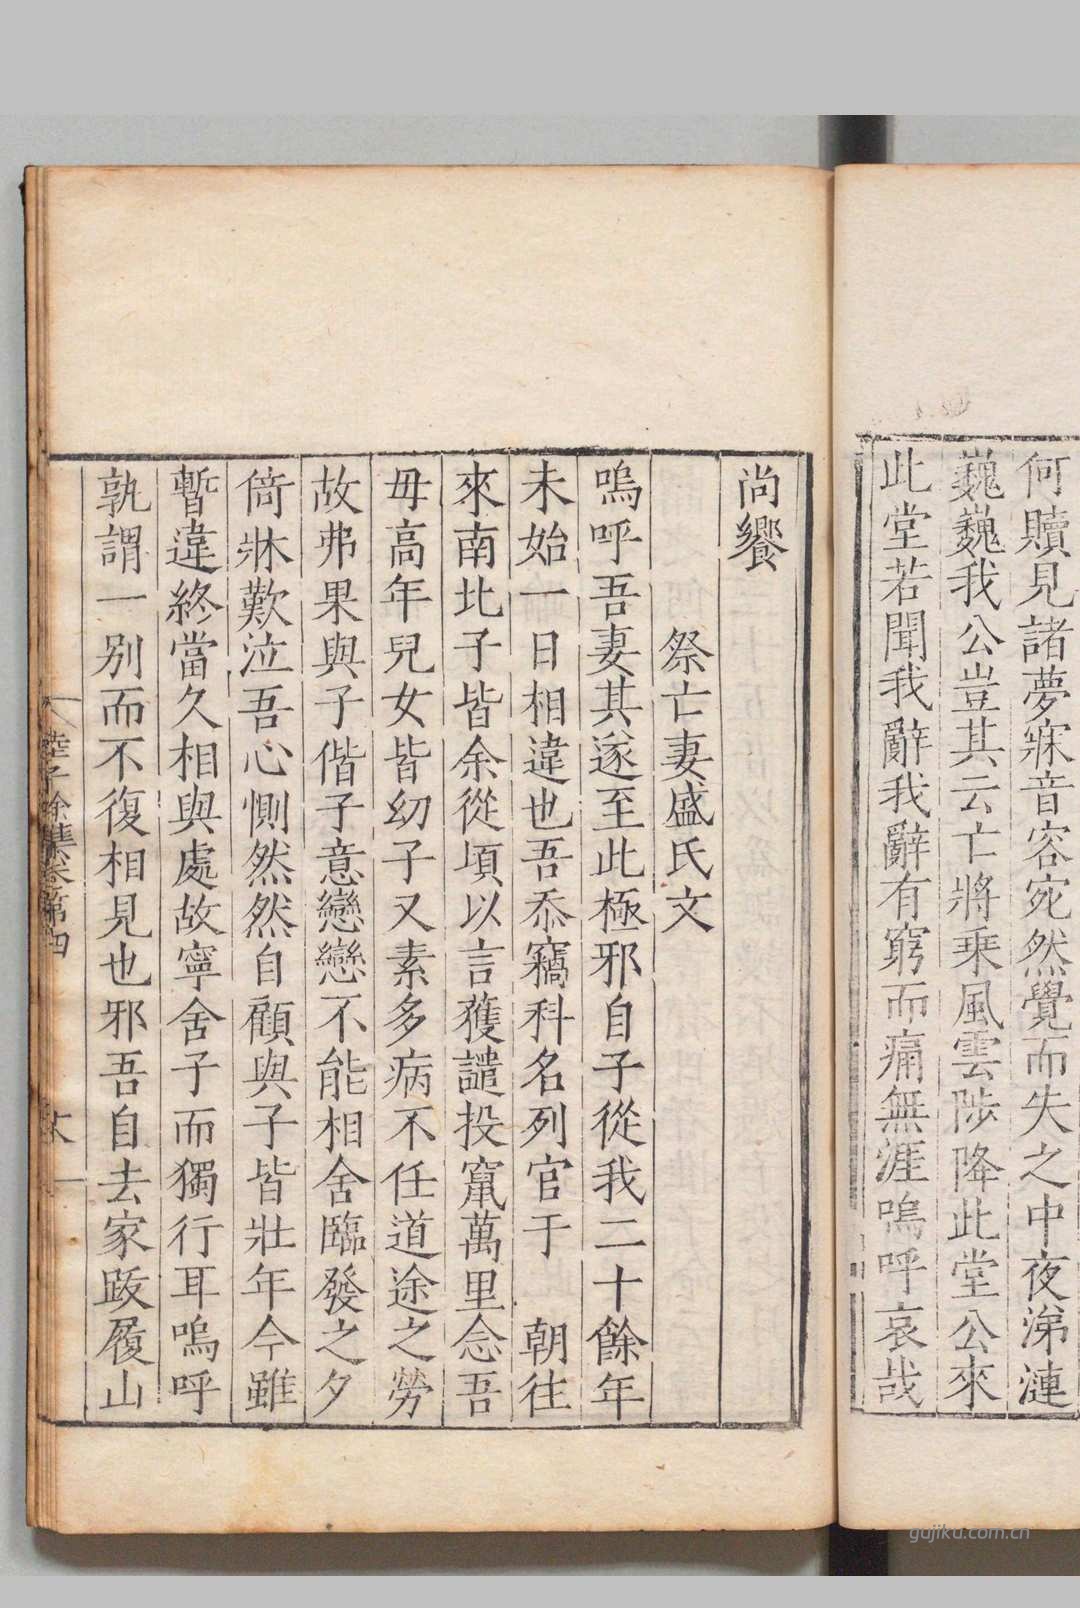 何贖見諸夢寐音容宛然覺而失之中夜涕漣
巍巍我公豈其云亡將乘風雲陟降此堂公來
此堂若聞我辭我辭有窮而痛無涯嗚呼哀哉
尚饗
祭亡妻盛氏文
嗚呼吾妻其遂至此極邪自子從我二十餘年
未始一日相違也吾忝竊科名列官于 朝往
來南北子皆余從頃以言獲譴投竄萬里念吾
母高年兒女皆幼子又素多病不任道途之勞
故弗果與子偕子意戀戀不能相舍臨發之夕
倚牀歎泣吾心惻然然自顧與子皆壯年今雖
暫違終當久相與處故寧舍子而獨行耳嗚呼
孰謂一别而不復相見也邪吾自去家跋履山
陸子餘集卷第四
gujiku.com.cn